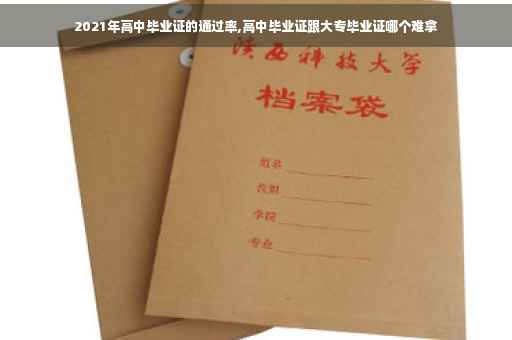 2021年高中毕业证的通过率,高中毕业证跟大专毕业证哪个难拿
陕西科技大学
档案袋
姓名
学院
专业